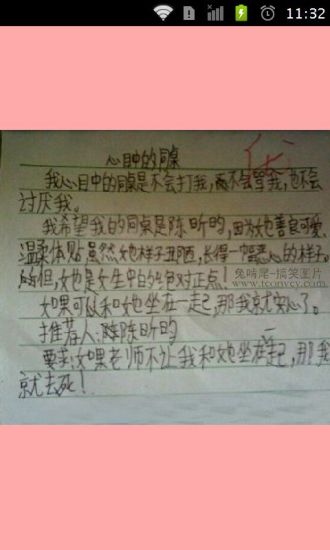 11:32
优
心目中的同桌
我心目中的同桌是不会打我,而不会骂我,也不会
讨厌我。
我希望我的同桌是陈昕昀,因为她善良可爱、
温柔体贴,虽然她样子丑陋,长得一幅恶心的样子。
的但,女也是女生中的绝对正点!
如果可以和她坐在一起,那我就安心了。
推荐人:陈昕昀
要求:如果老师不让我和她坐在一起,那我
就去死!
兔啃尾-搞笑图片